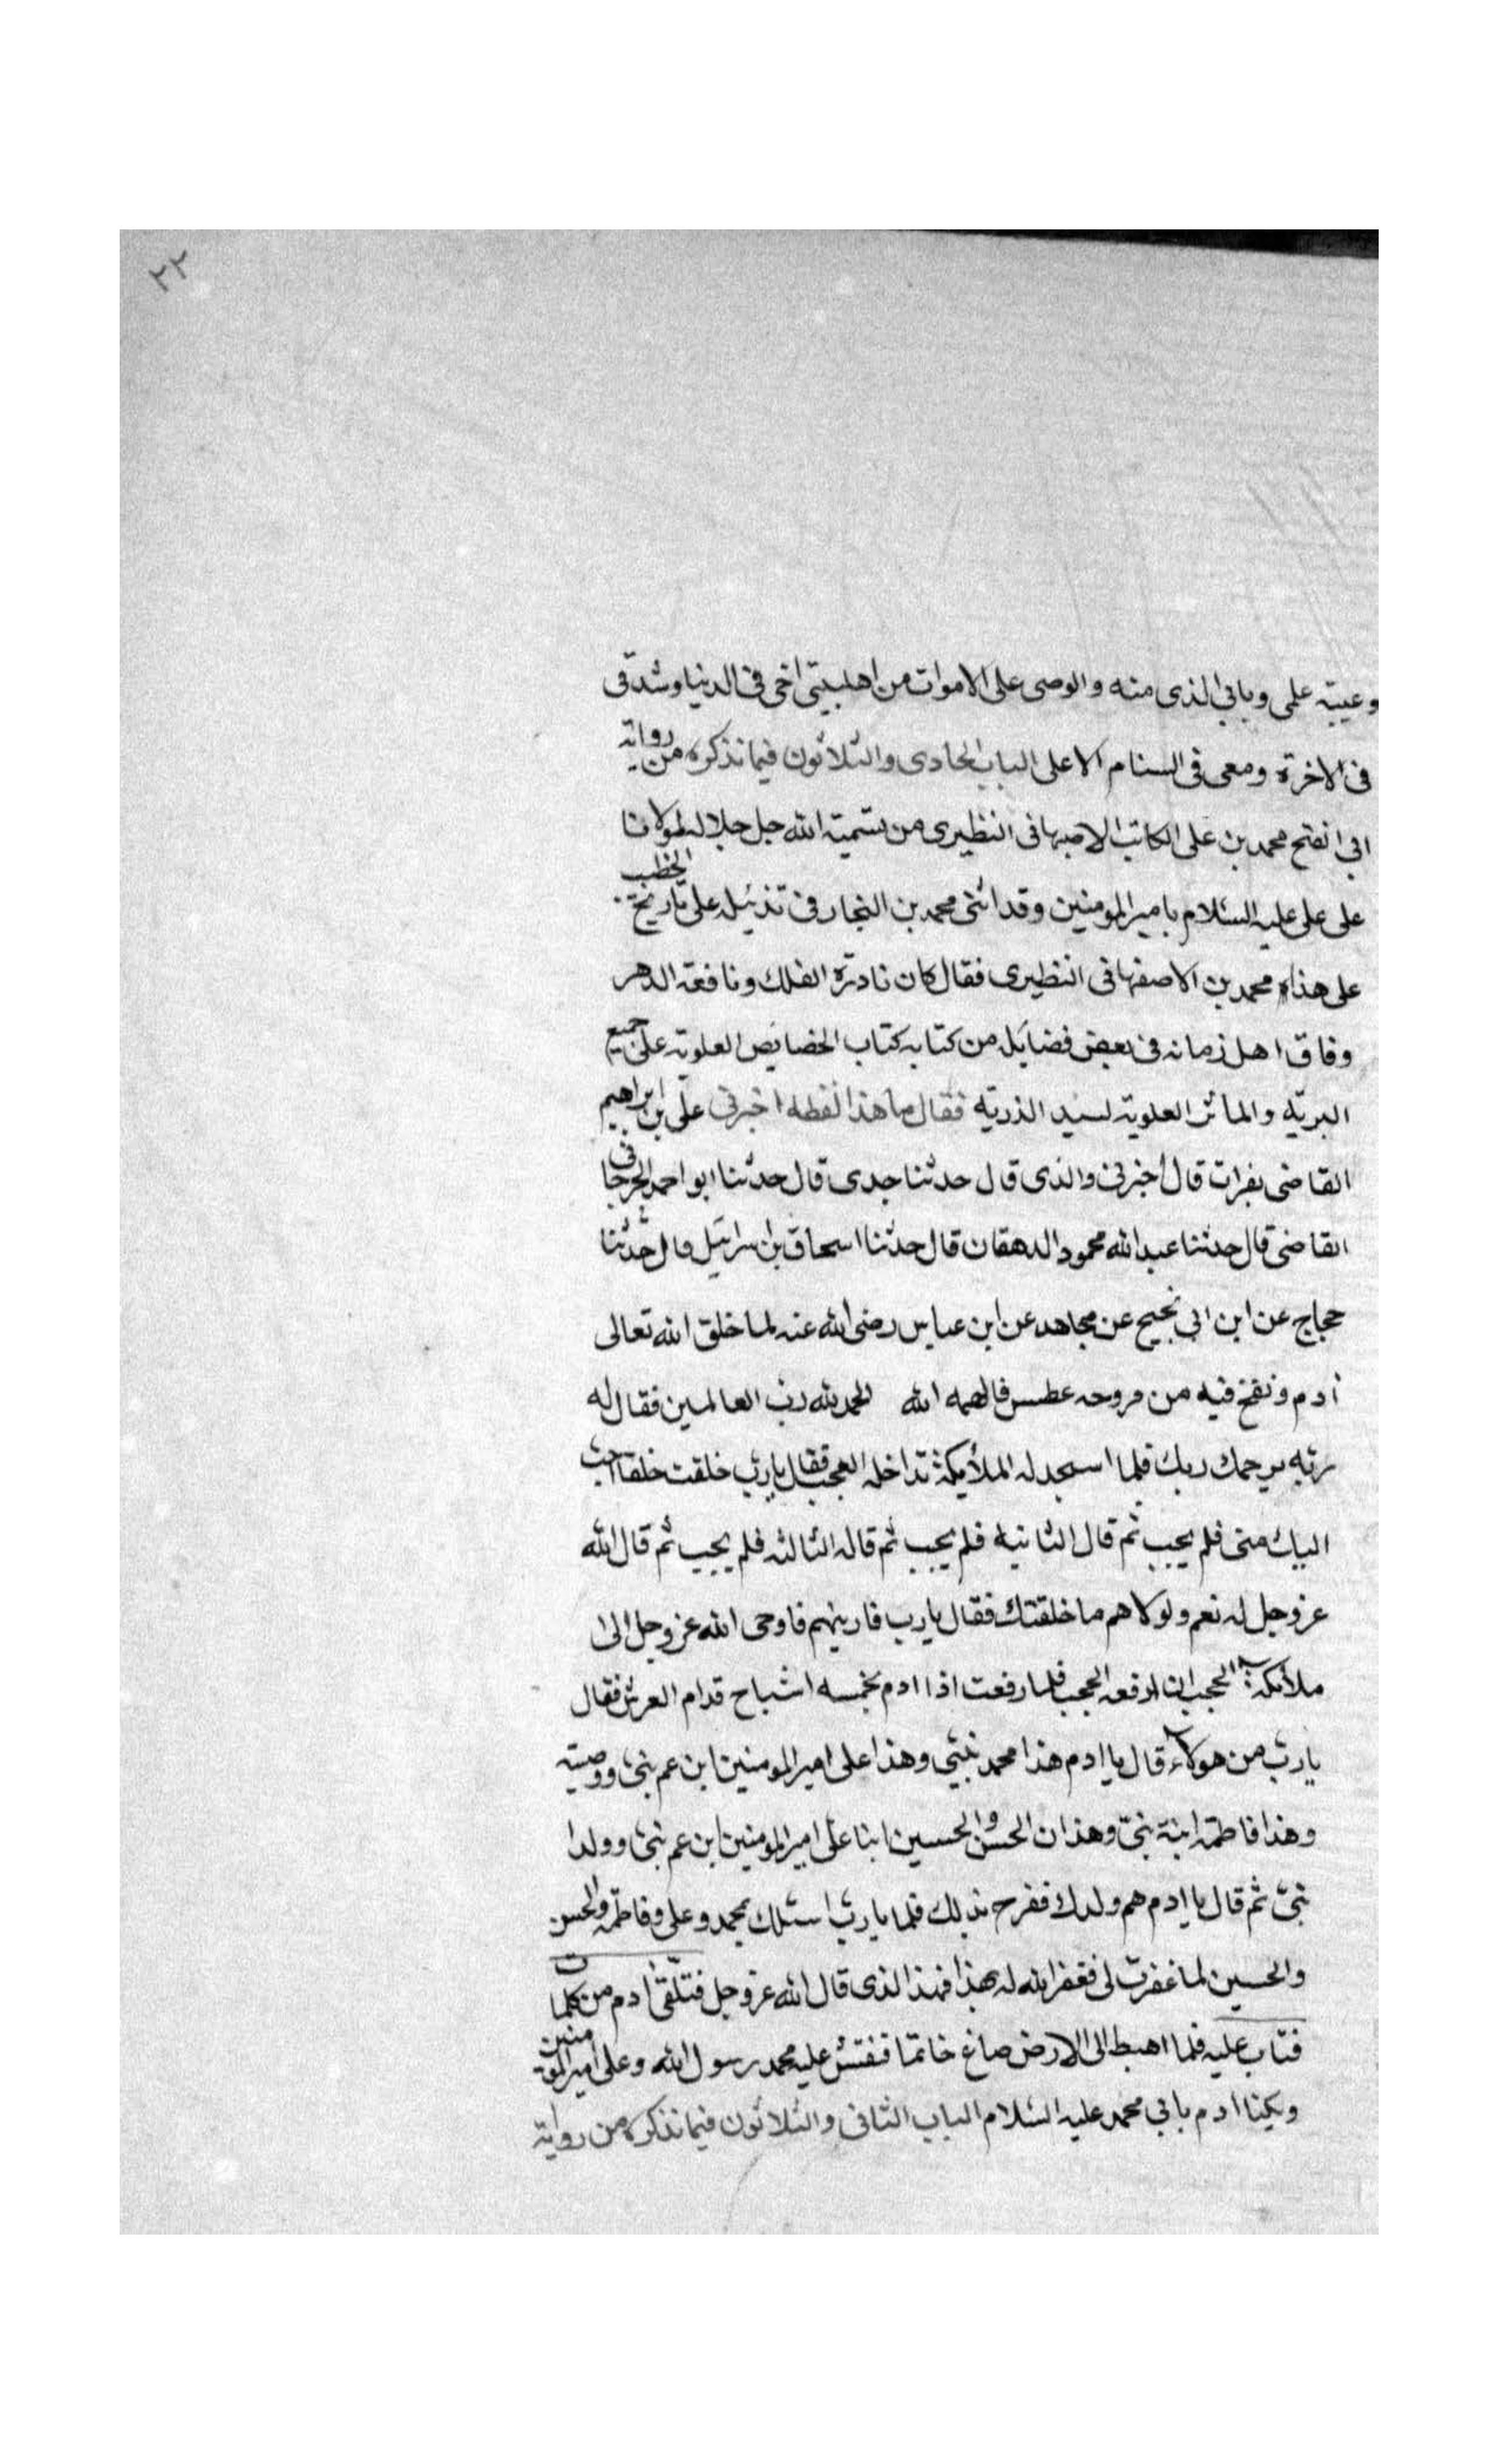 ٢٢
وعيبته علمى وبابى الذى منه والوصى على الاموات من اهلبيتى اخى فى الدنيا وشدقى
فى الاخرة ومعى فى السنام الاعلى الباب الحادى والثلاثون فيما نذكره من رواية
ابى الفتح محمد بن على الكاتب الاصبهانى النظيرى من تسمية الله جل جلاله لمولانا
على على عليه السلام بامير المومنين وقد اثنى محمد بن النجار فى تذئيله على تاريخ الخطيب
على هذا محمد بن الاصفهانى النظيرى فقال كان نادرة الفلك ونافعة الدهر
وفاق اهل زمانه فى بعض فضايله من كتابه كتاب الخصايص العلوية على جميع
البريه والماثر العلوية لسيد الذريه فقال ما هذا لفظه اخبرنى على بن ابراهيم
القاضى بفرات قال اخبرنى والذى قال حدثنا جدى قال حدثنا ابو احمد الجرجانى
القاضى قال حدثنا عبد الله محمود الدهقان قال حدثنا اسحاق بن اسرائيل قال حدثنا
حجاج عن ابن ابى نجيح عن مجاهد عن ابن عباس رضى الله عنه لما خلق الله تعالى
آدم ونفخ فيه من مروحه عطس فالهمه الله الحمد لله رب العالمين فقال له
ربه يرحمك ربك فلما اسجد له الملأيكة تداخله العجب فقال يا رب خلقت خلقا احب
اليك منى فلم يجب ثم قال الثانية فلم يجب ثم قاله الثالثه فلم يجيب ثم قال الله
عز وجل له نعم ولولاهم ما خلقتك فقال يا رب فارينهم فاوحى الله عز وجل الى
ملأيكة الحجب ان ارفعه الحجب فلما رفعت اذا ادم بخمسه اشباح قدام العرش فقال
يا رب من هولاء قال يا ادم هذا محمد نبيى وهذا على امير المومنين ابن عم نبى ووصيته
وهذا فاطمه ابنة نبى وهذان الحسن والحسين ابنا على امير المومنين ابن عم نبى وولدا
نبى ثم قال يا ادم هم ولدك ففرح بذلك فلما يا رب اسئلك بمحمد وعلى وفاطمه والحسن
والحسين لما غفرت لى فغفر الله له بهذا فهذا الذى قال الله عز وجل فتلقى آدم من كلمات
فتاب عليه فلما اهبط الى الارض صاغ خاتما فنقش عليه محمد رسول الله وعلى امير المومنين
ويكنا ادم بابى محمد عليه السلام الباب الثانى والثلاثون فيما نذكره من رواية